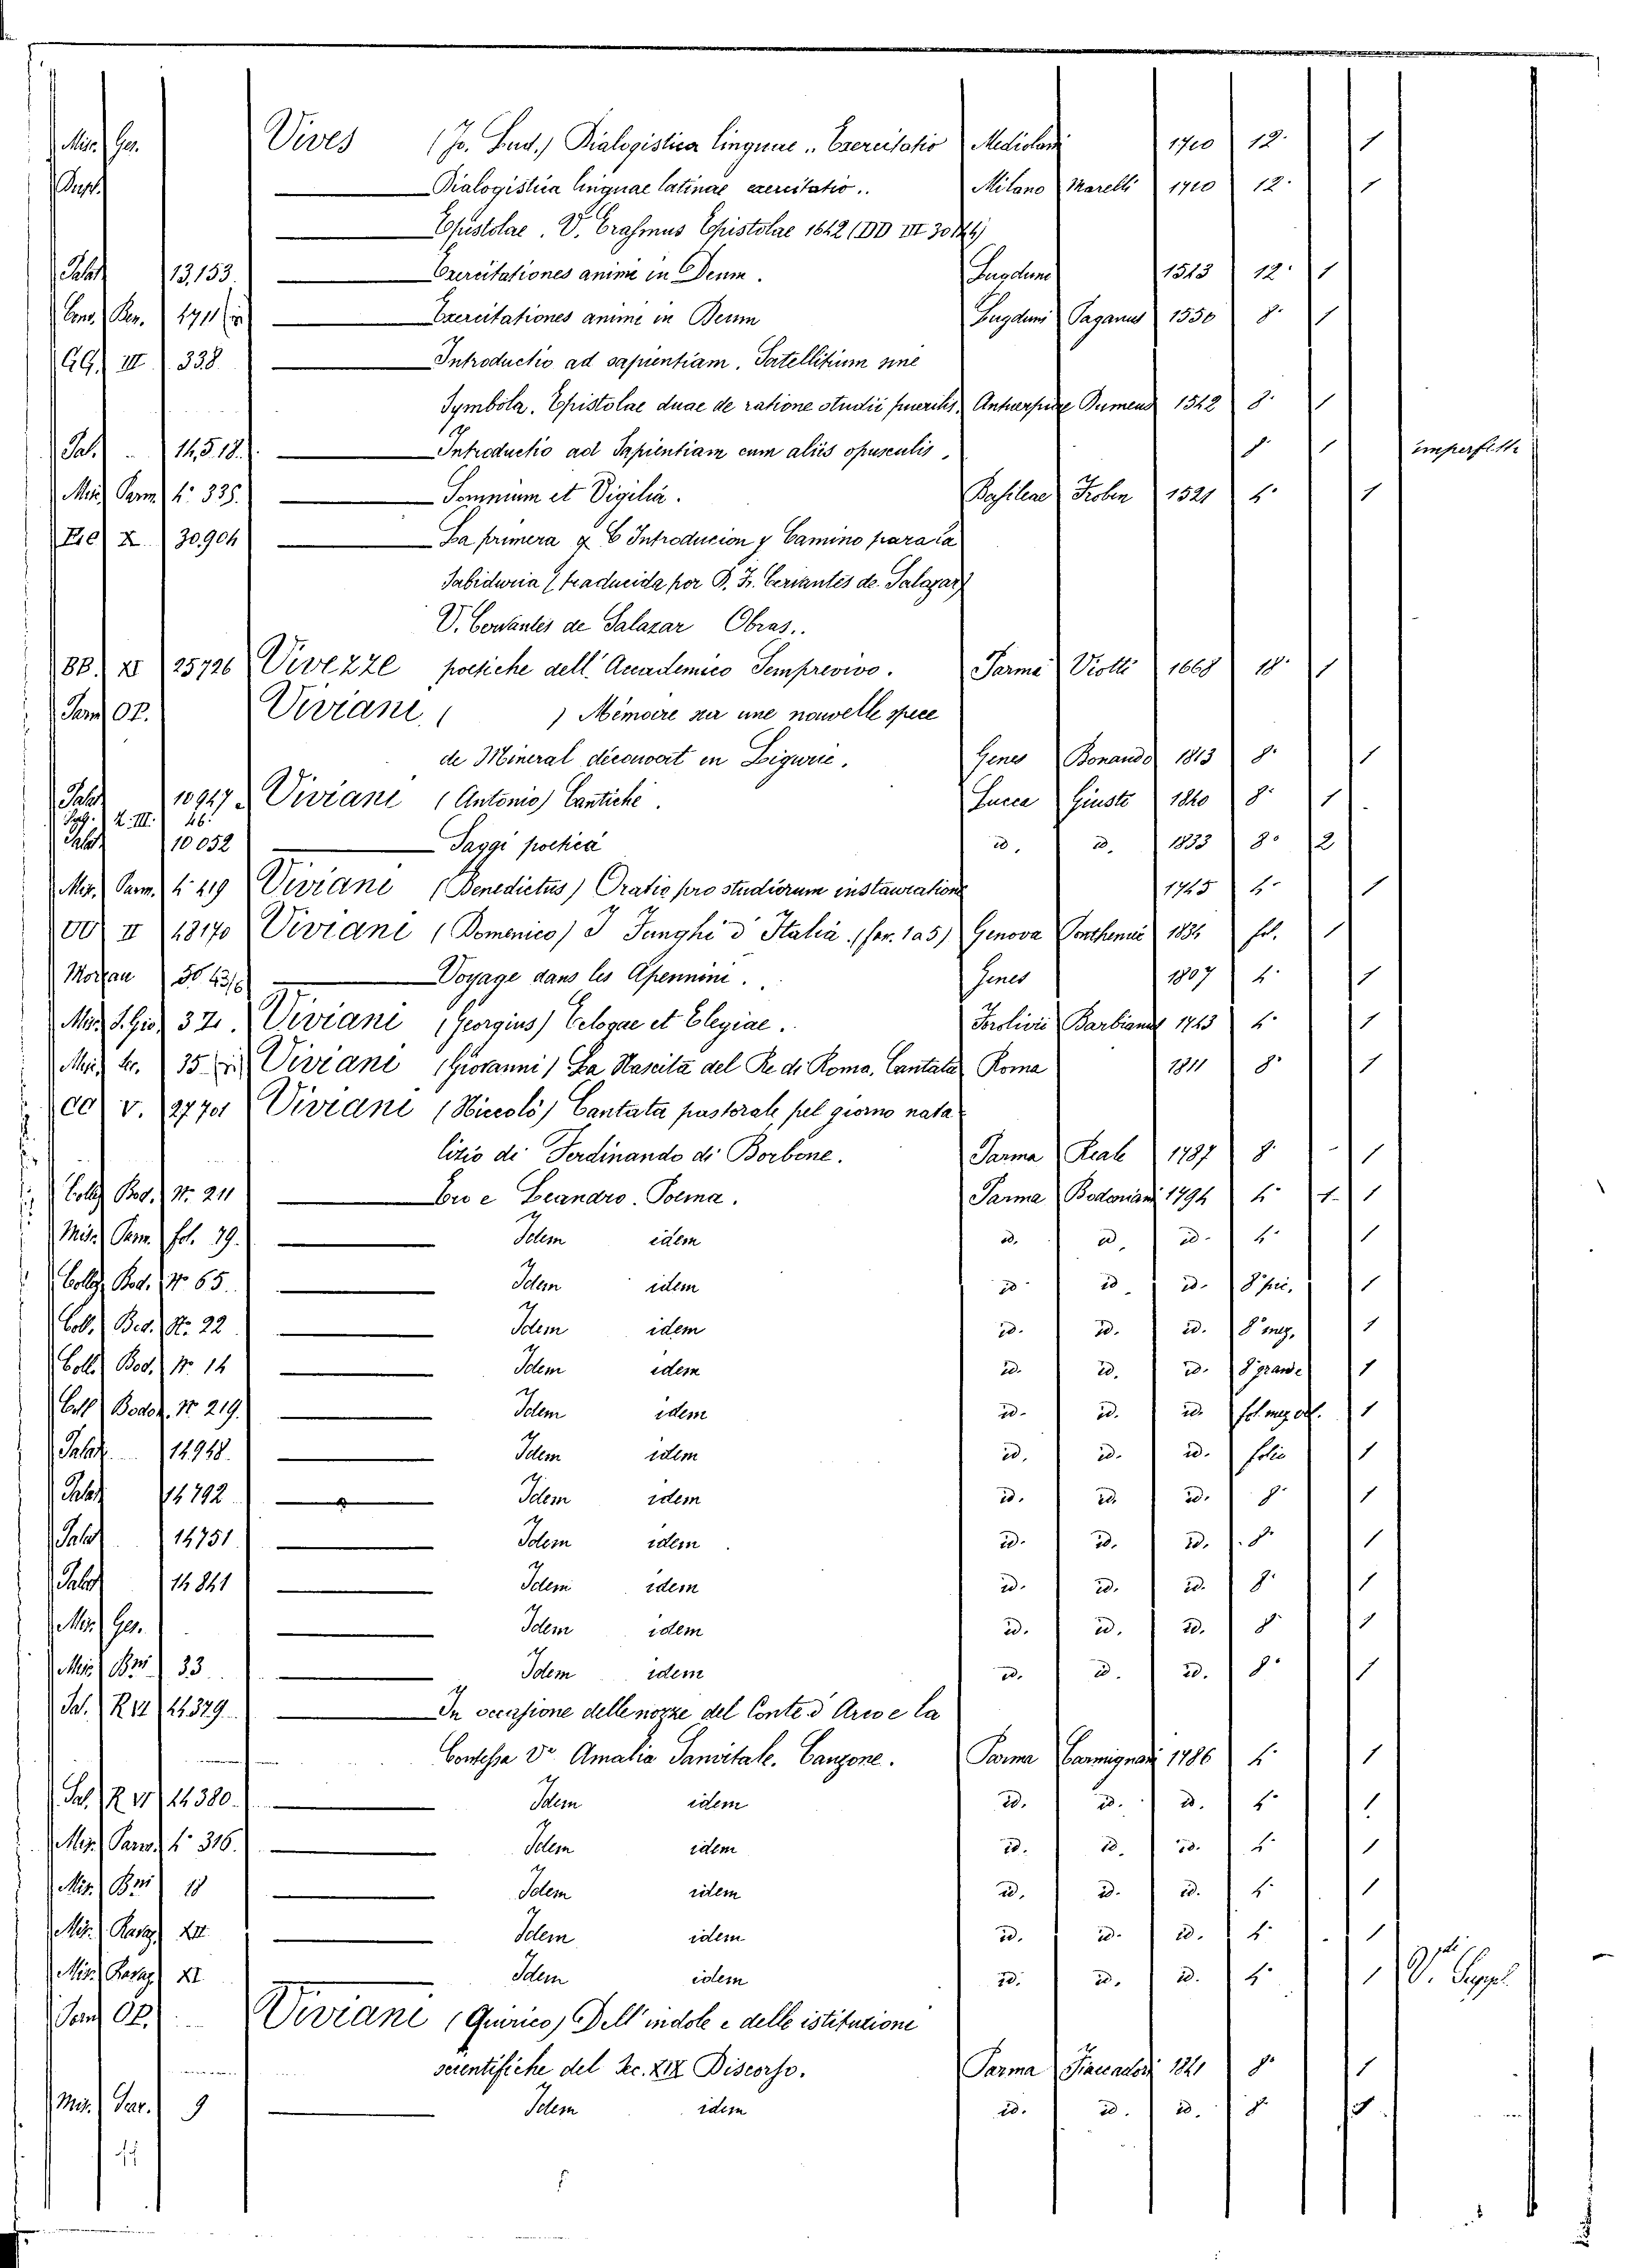 Mis. Ger. Vives (Jo. Lud.) Dialogistica linguae .. Exercitatio Mediolani 1710 12. 1
Suppl. Dialogistica linguae latinae exercitatio .. Milano Marelli 1710 12. 1
Epistolae. V. Erasmus Epistolae 1642 (DD III 30124)
Palat 13,153 Exercitationes animi in Deum. Lugduni 1543 12. 1
Exercitationes animi in Deum Lugduni Paganus 1550 8. 1
GG. III 338. Introductio ad sapientiam. Satellitium sive
Symbola. Epistolae duae de ratione studii puerilis. Antuerpiae Dumeus 1542 8. 1
Pal. 14,518. Introductio ad Sapientiam cum aliis opusculis. 8. 1 imperfetto
Mis. Parm. 4.° 335. Somnium et Vigilia. Basileae Froben 1521 4. 1
X 30,904 La primera & C Introducion y Camino para la
Sabiduria (traducida por D. Fr. Cervantes de Salazar)
V. Cervantes de Salazar Obras..
BB. XI 25726 Vivezze poetiche dell' Accademico Semprevivo. Parma Viotti 1668 18. 1
Viviani ( ) Mémoire sur une nouvelle spece
de Mineral découvert en Ligurie. Genes Bonando 1813 8. 1
Palat 10947 Viviani (Antonio) Cantiche. Lucca Giusti 1840 8. 1
Palat 10052 Saggi poetici id. id. 1833 8. 2
Mis. Parm. 4. 219 Viviani (Benedictus) Oratio pro studiorum instauratione 1745 4. 1
II 18170 Viviani (Domenico) I Funghi d' Italia. (fas. 1 a 5) Genova Ponthenier 1834 fol. 1
Voyage dans les Apennins.. Genes 1807 4. 1
Mis. S. Gio. 32. Viviani (Georgius) Eclogae et Elegiae. Forolivii Barbiani 1743 4. 1
Viviani (Giovanni) La Nascita del Re di Roma. Cantata Roma 1811 8. 1
CC V. 27701 Viviani (Niccolò) Cantata pastorale pel giorno nata
lizio di Ferdinando di Borbone. Parma Reale 1787 8. 1
Collez. Bod. N.° 211 Ero e Leandro. Poema. Parma Bodoniani 1794 4. 1. 1
Mis. Parm. fol. 19. Idem idem id. id. id. 4. 1
Collez. Bod. N° 65. Idem idem id. id. id. 8 pic. 1
Coll. Bod. N. 22 Idem idem id. id. id. 8 mez. 1
Coll. Bod. N. 14 Idem idem id. id. id. 8 grande 1
Coll. Bodon. N° 219. Idem idem id. id. id. fol. mez. 1
Palat. 14948. Idem idem id. id. id. folio 1
Palat 14792 Idem idem id. id. id. 8. 1
Palat 14751 Idem idem id. id. id. 8. 1
Palat 14841 Idem idem id. id. id. 8. 1
Mis. Ger. Idem idem id. id. id. 8 1
Mis. 33 Idem idem id. id. id. 8. 1
Pal. 24379 In occasione delle nozze del Conte d' Arco e la
Contessa D.a Amalia Sanvitale. Canzone. Parma Carmignani 1786 4. 1
Pal. 24380. Idem idem id. id. id. 4. 1
Mis. Parm. 4.° 316. Idem idem id. id. id. 4. 1
Mis. 18 Idem idem id. id. id. 4. 1
Mis. XII. Idem idem id. id. id. 4. 1
Mis. XI Idem idem id. id. id. 4. 1 V. Suppl.
Viviani (Quirico) Dell' indole e delle istituzioni
scientifiche del Sec. XIX Discorso. Parma Fiaccadori 1841 8. 1
Mis. 9 Idem idem id. id. id. 8. 1